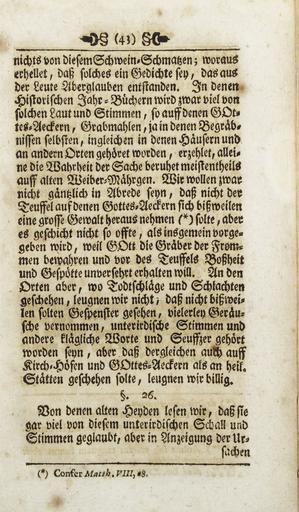 (43)
nichts von diesem Schwein-Schmatzen; woraus
erhellet, daß solches ein Gedichte sey, das aus
der Leute Aberglauben entstanden. In denen
Historischen Jahr-Büchern wird zwar viel von
solchen Laut und Stimmen, so auff denen GOt-
tes-Aeckern, Grabmahlen, ja in denen Begräb-
nissen selbsten, ingleichen in denen Häusern und
an andern Orten gehöret worden, erzehlet, allei-
ne die Wahrheit der Sache beruhet meistentheils
auff alten Weiber-Mährgen. Wir wollen zwar
nicht gäntzlich in Abrede seyn, daß nicht der
Teuffel auf denen Gottes-Aeckern sich bißweilen
eine grosse Gewalt heraus nehmen (*) solte, aber
es geschicht nicht so offte, als insgemein vorge-
geben wird, weil GOtt die Gräber der From-
men bewahren und vor des Teuffels Boßheit
und Gespötte unversehrt erhalten will. An den
Orten aber, wo Todtschläge und Schlachten
geschehen, leugnen wir nicht, daß nicht bißwei-
len solten Gespenster gesehen, vielerley Geräu-
sche vernommen, unterirdische Stimmen und
andere klägliche Worte und Seuffzer gehört
worden seyn, aber daß dergleichen auch auff
Kirch-Höfen und GOttes-Aeckern als an heil.
Stätten geschehen solte, leugnen wir billig.
§. 26.
Von denen alten Heyden lesen wir, daß sie
gar viel von diesem unterirdischen Schall und
Stimmen geglaubt, aber in Anzeigung der Ur-
sachen
(*) Confer Matth. VIII, 28.